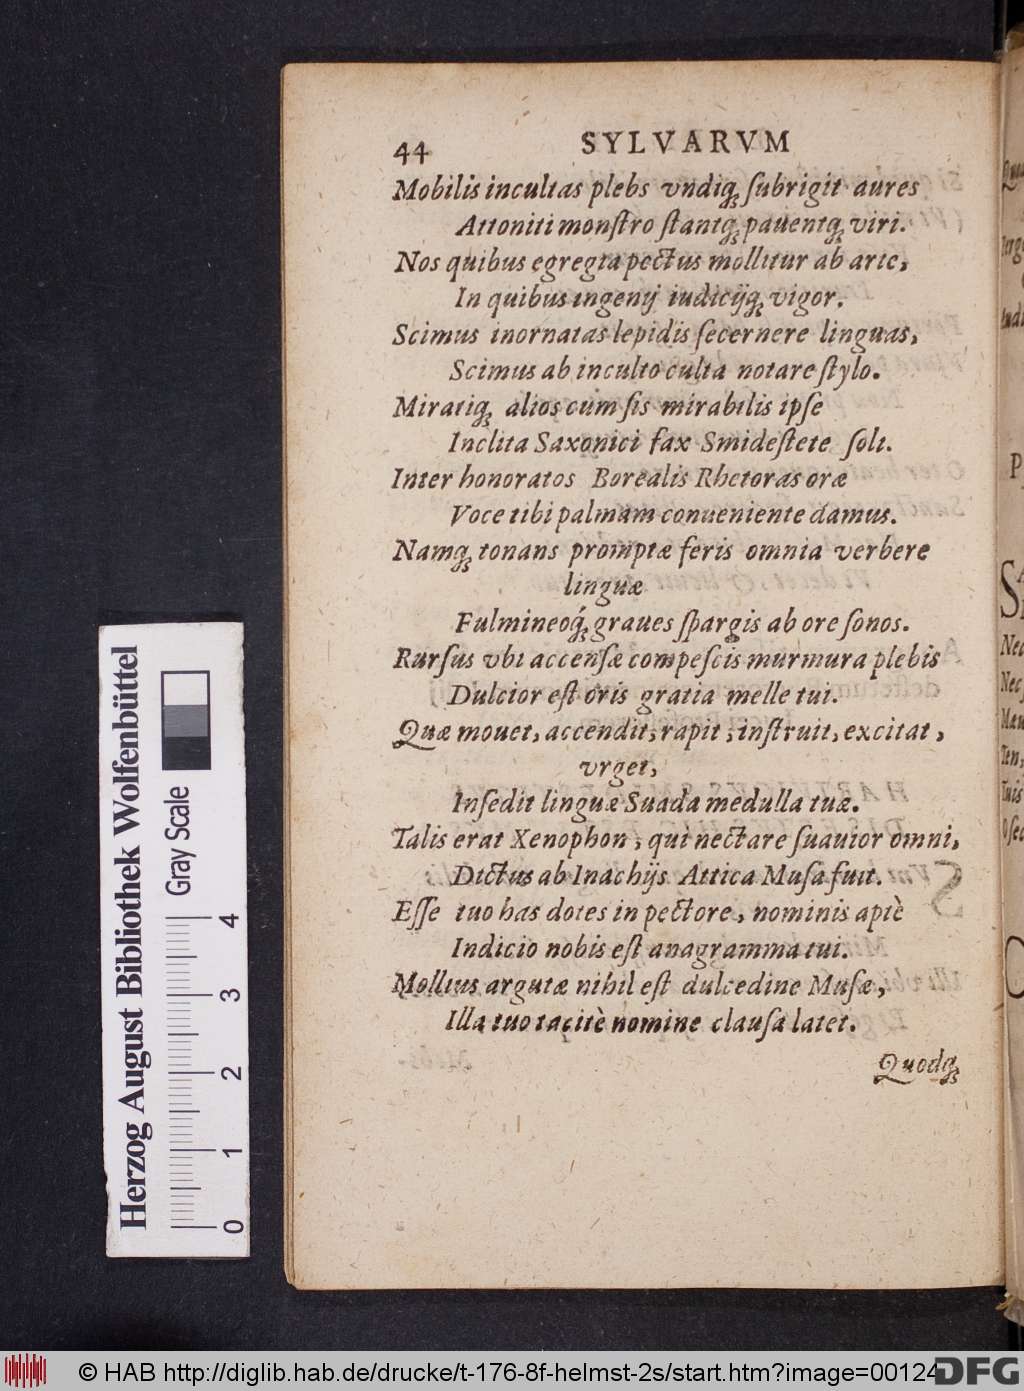 44 SYLVARVM
Mobilis incultas plebs vndiq; ſubrigit aures
Attoniti monſtro ſtantq; pauentq; viri.
Nos quibus egregia pectus mollitur ab arte,
In quibus ingenij iudicijq; vigor.
Scimus inornatas lepidis ſecernere linguas,
Scimus ab inculto culta notare ſtylo.
Miratiq; alios cùm ſis mirabilis ipſe
Inclita Saxonici fax Smideſtete ſoli.
Inter honoratos Borealis Rhetoras oræ
Voce tibi palmam conueniente damus.
Namq; tonans promptæ feris omnia verbere
linguæ
Fulmineoq́; graues ſpargis ab ore ſonos.
Rurſus vbi accenſæ compeſcis murmura plebis
Dulcior eſt oris gratia melle tui.
Quæ mouet, accendit, rapit, inſtruit, excitat,
vrget,
Inſedit linguæ Suada medulla tuæ.
Talis erat Xenophon, qui nectare ſuauior omni,
Dictus ab Inachijs Attica Muſa fuit.
Eſſe tuo has dotes in pectore, nominis aptè
Indicio nobis eſt anagramma tui.
Mollius argutæ nihil eſt dulcedine Muſæ,
Illa tuo tacitè nomine clauſa latet.
Quodq;
Herzog August Bibliothek Wolfenbüttel
Gray Scale
0 1 2 3 4
© HAB http://diglib.hab.de/drucke/t-176-8f-helmst-2s/start.htm?image=00124
DFG